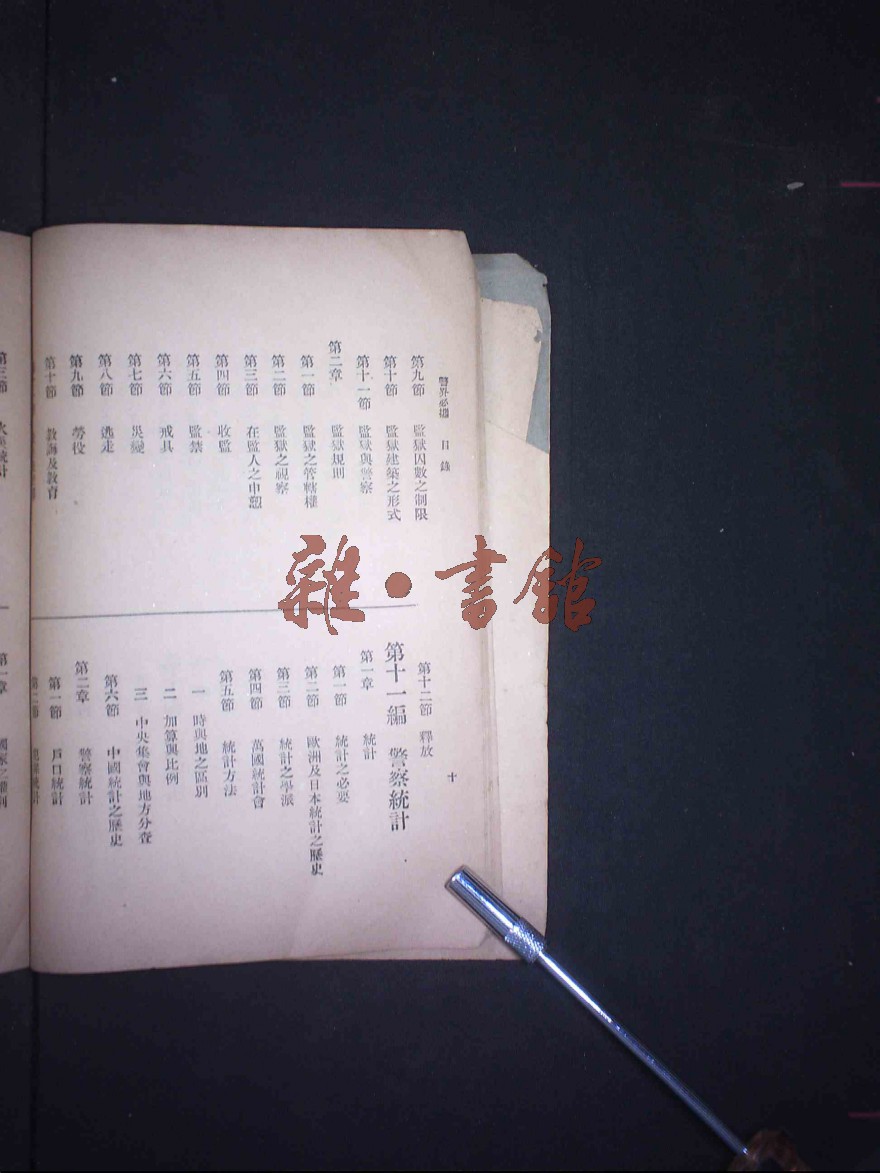 警界必攜 目錄
第九節 監獄囚數之制限
第十節 監獄建築之形式
第十一節 監獄與警察
第二章 監獄規則
第一節 監獄之管轄權
第二節 監獄之視察
第三節 在監人之申愬
第四節 收監
第五節 監禁
第六節 戒具
第七節 災變
第八節 逃走
第九節 勞役
第十節 教誨及教育
十
第十二節 釋放
第十一編 警察統計
第一章 統計
第一節 統計之必要
第二節 歐洲及日本統計之歷史
第三節 統計之學派
第四節 萬國統計會
第五節 統計方法
一 時與地之區別
二 加算與比例
三 中央集會與地方分查
第六節 中國統計之歷史
第二章 警察統計
第一節 戶口統計
第二節 統計
第三節 統計
第一章 國家之
雜·書館